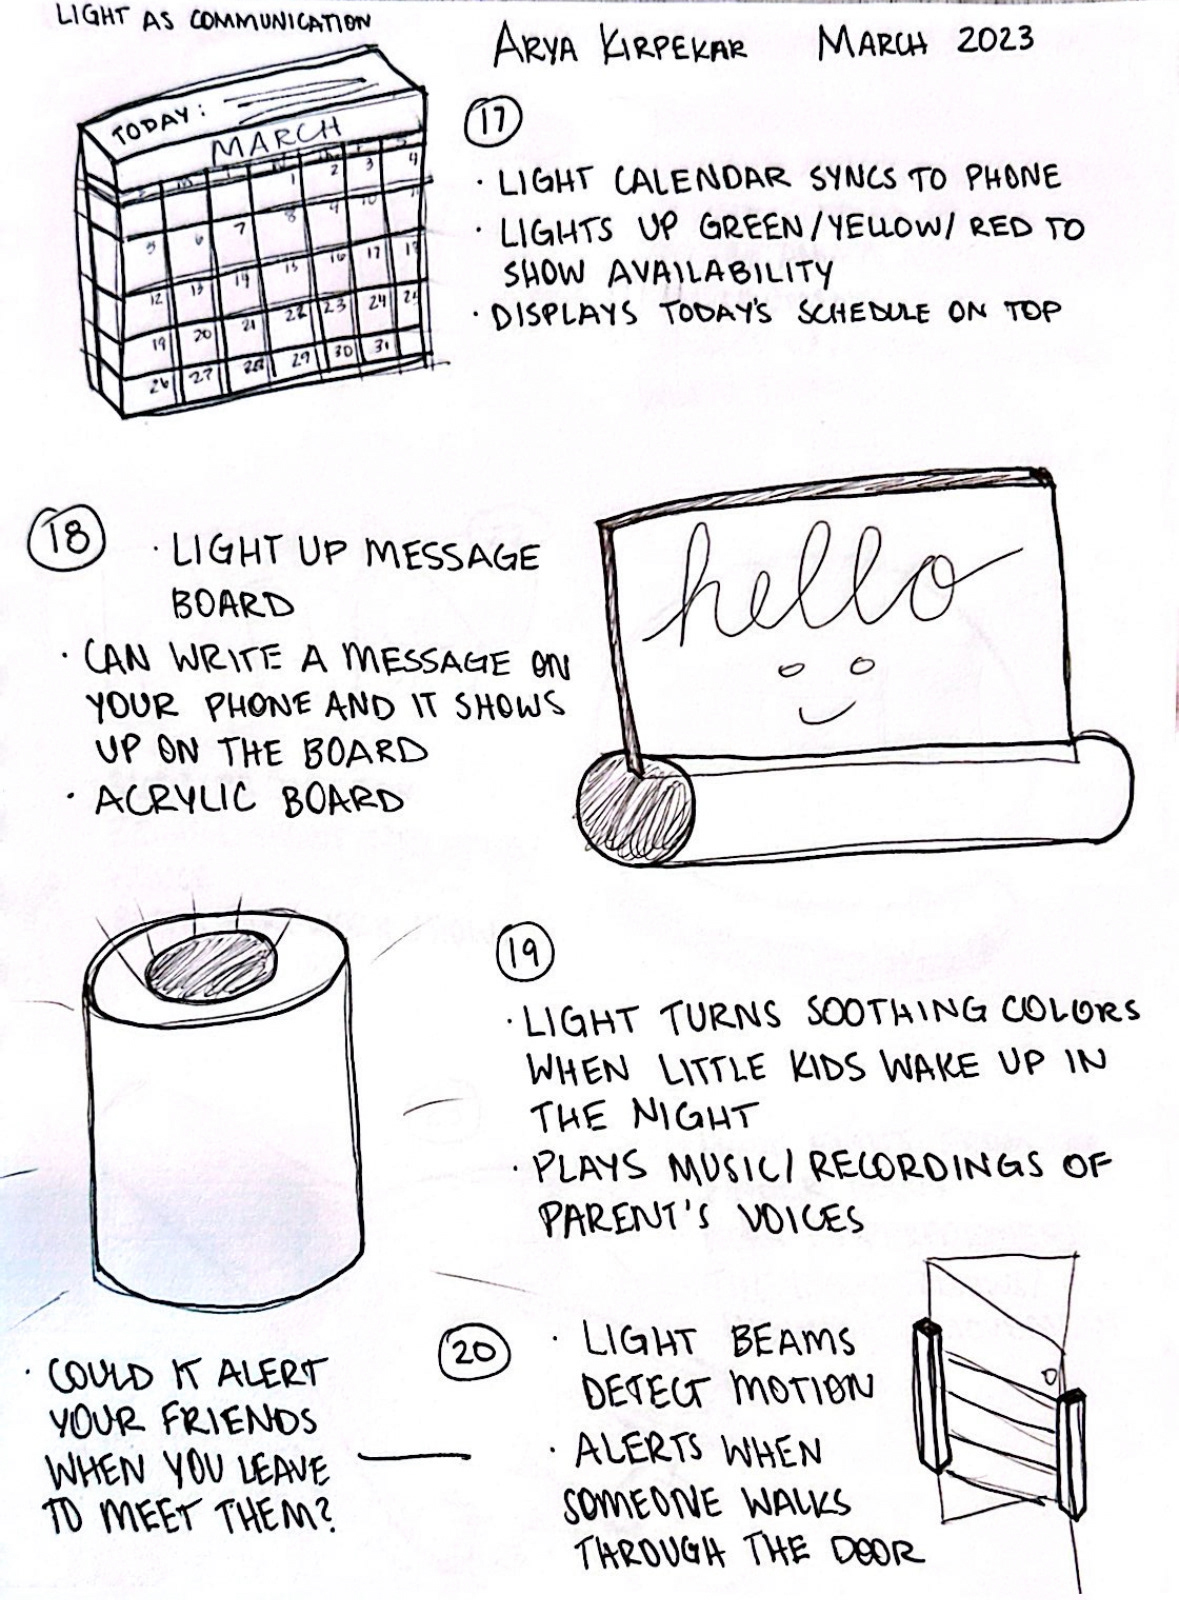 LIGHT AS COMMUNICATION
ARYA KIRPEKAR MARCH 2023
TODAY:
MARCH
1 2 3 4
5 6 7 8 9 10 11
12 13 14 15 16 17 18
19 20 21 22 23 24 25
26 27 28 29 30 31
17
· LIGHT CALENDAR SYNCS TO PHONE
· LIGHTS UP GREEN/YELLOW/RED TO
SHOW AVAILABILITY
· DISPLAYS TODAY'S SCHEDULE ON TOP
18
· LIGHT UP MESSAGE
BOARD
· CAN WRITE A MESSAGE ON
YOUR PHONE AND IT SHOWS
UP ON THE BOARD
· ACRYLIC BOARD
hello
19
· LIGHT TURNS SOOTHING COLORS
WHEN LITTLE KIDS WAKE UP IN
THE NIGHT
· PLAYS MUSIC/RECORDINGS OF
PARENT'S VOICES
20
· LIGHT BEAMS
DETECT MOTION
· ALERTS WHEN
SOMEONE WALKS
THROUGH THE DOOR
· COULD IT ALERT
YOUR FRIENDS
WHEN YOU LEAVE
TO MEET THEM?